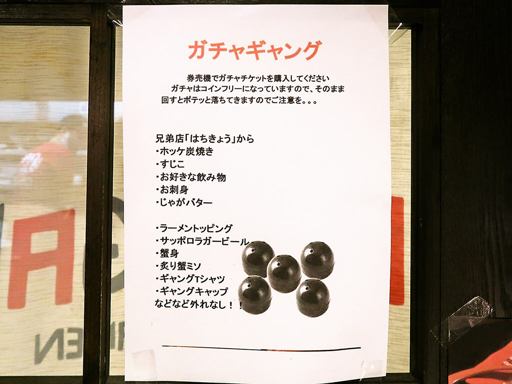 ガチャギャング
券売機でガチャチケットを購入してください
ガチャはコインフリーになっていますので、そのまま
回すとボテッと落ちてきますのでご注意を。。。
兄弟店「はちきょう」から
・ホッケ炭焼き
・すじこ
・お好きな飲み物
・お刺身
・じゃがバター
・ラーメントッピング
・サッポロラガービール
・蟹身
・炙り蟹ミソ
・ギャングTシャツ
・ギャングキャップ
などなど外れなし！！